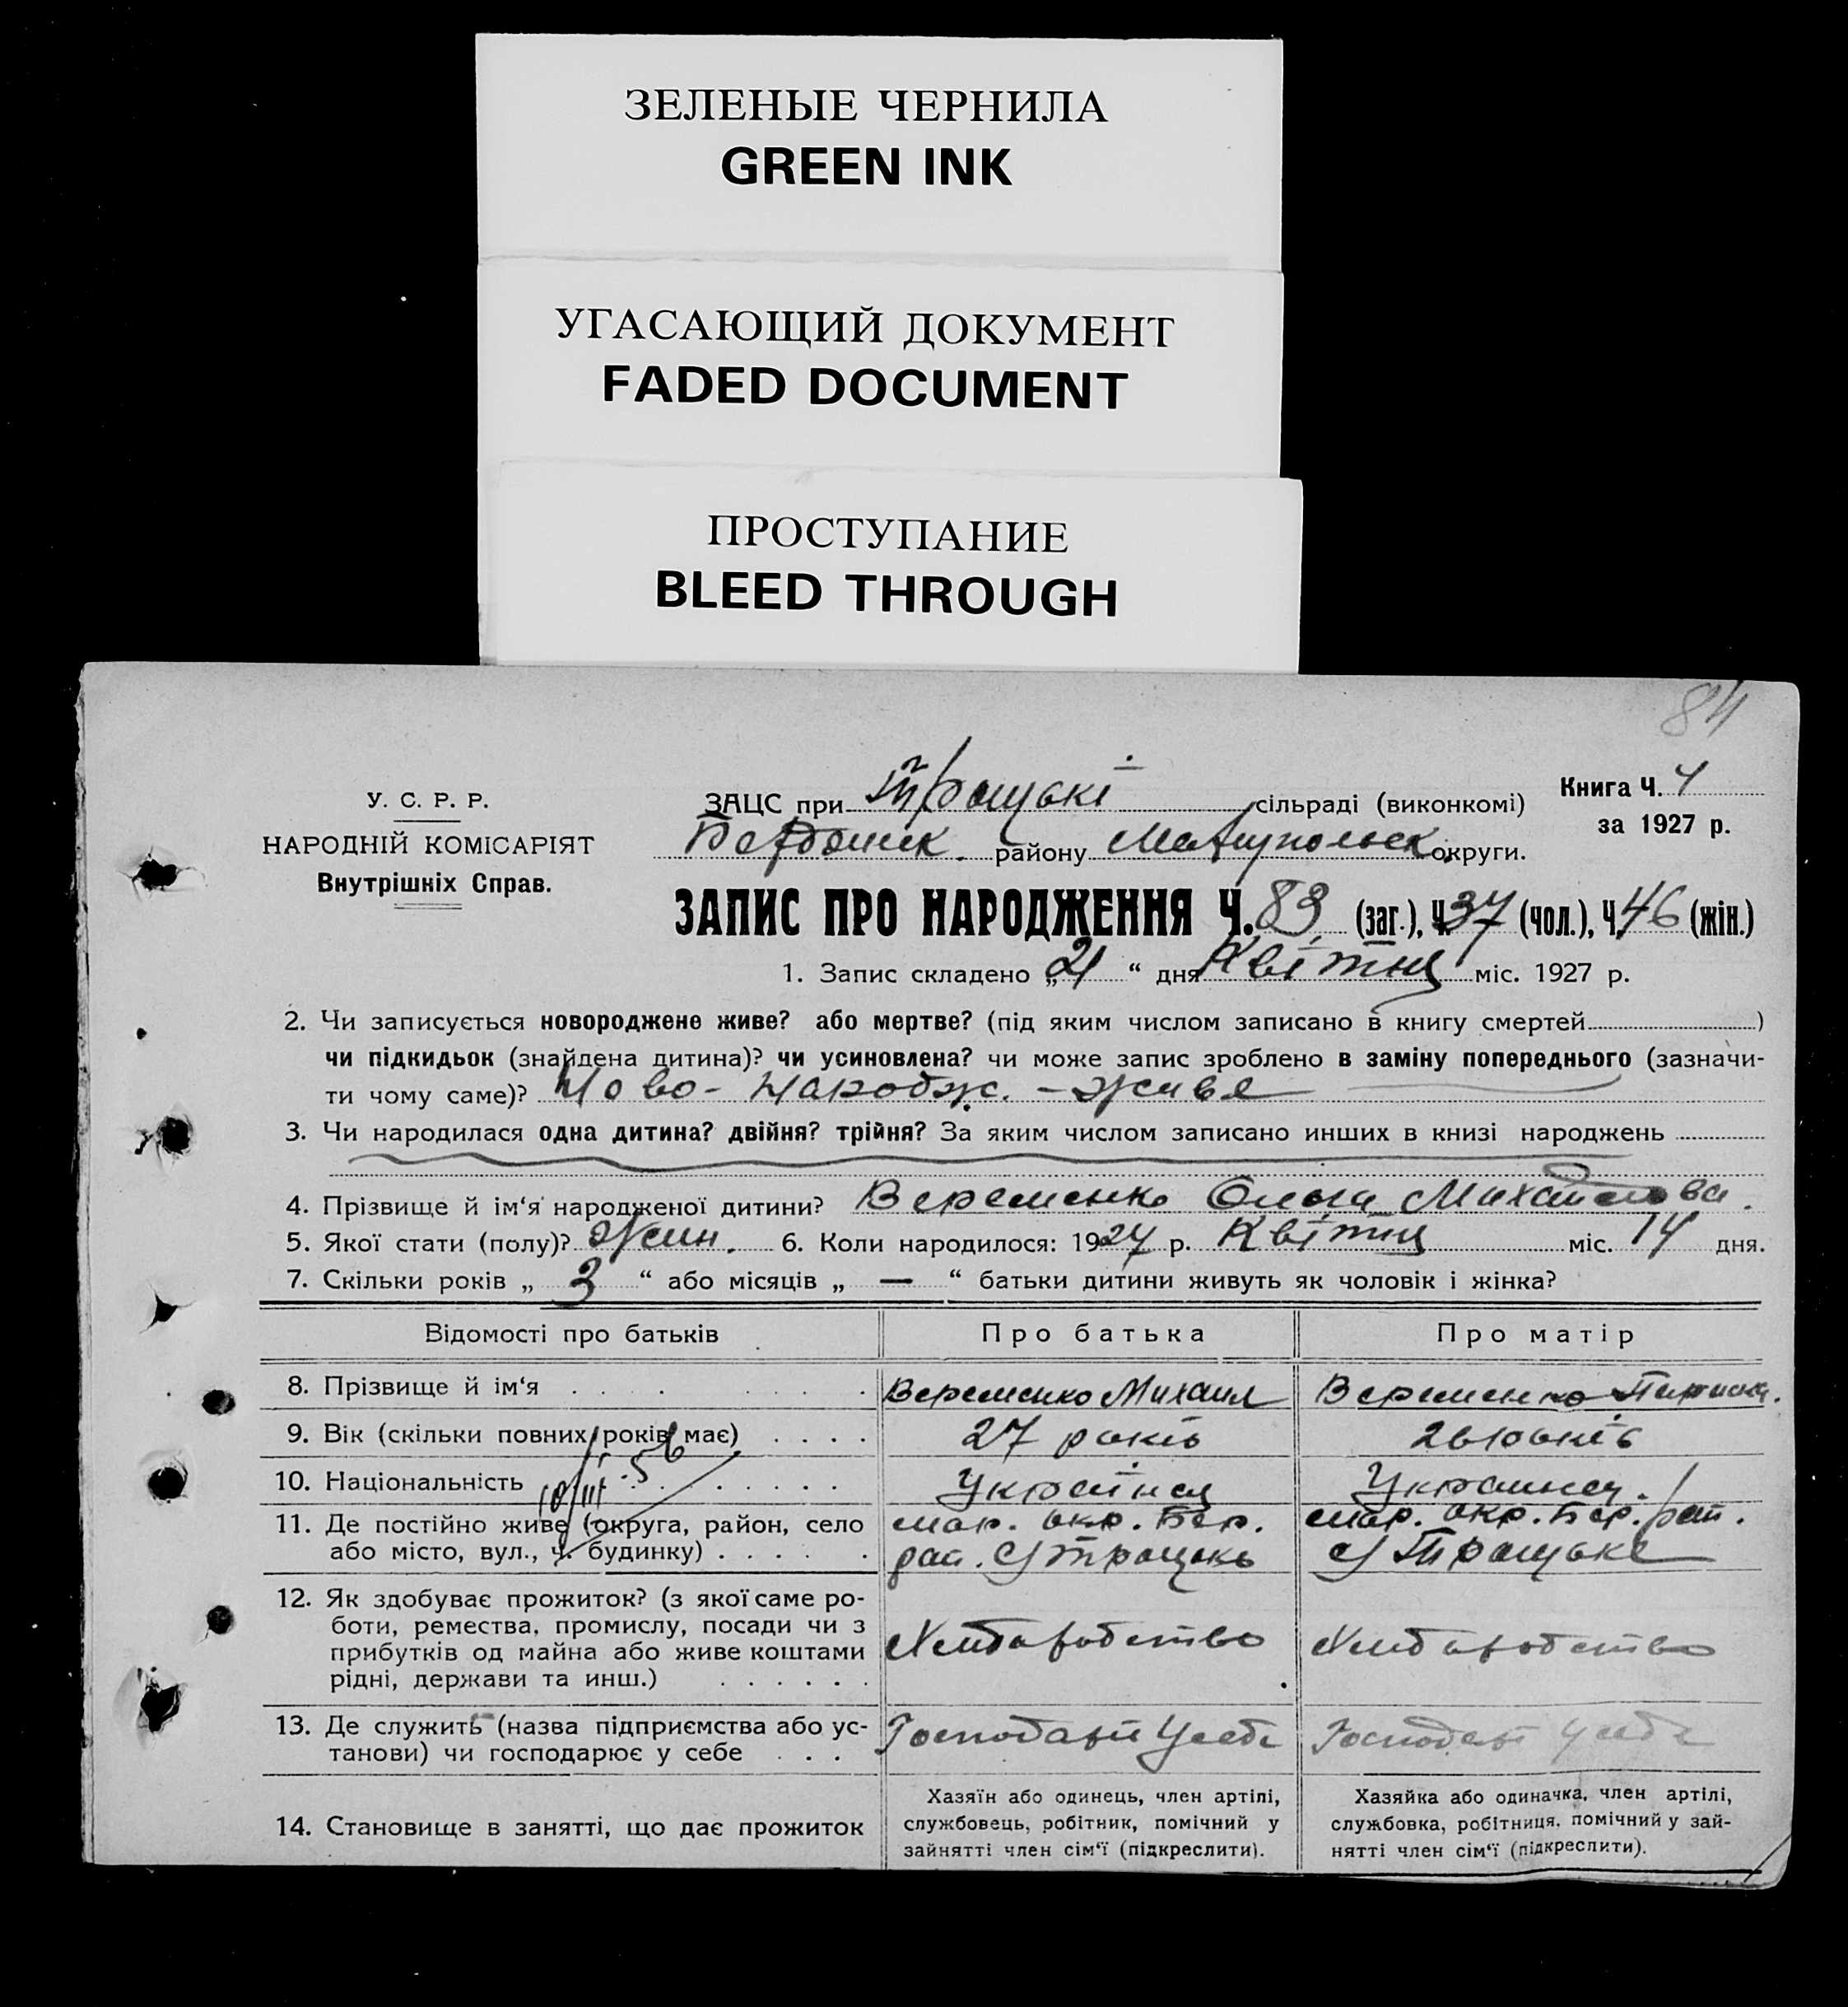 ЗЕЛЕНЫЕ ЧЕРНИЛА
GREEN INK
УГАСАЮЩИЙ ДОКУМЕНТ
FADED DOCUMENT
ПРОСТУПАНИЕ
BLEED THROUGH
84
У. С. Р. Р.
НАРОДНІЙ КОМІСАРІЯТ
Внутрішніх Справ.
Книга Ч. 4
за 1927 р.
ЗАЦС при Троцькі сільраді (виконкомі)
Бердянск. району Маріупольск. округи.
ЗАПИС ПРО НАРОДЖЕННЯ Ч. 83 (заг.), Ч. 37 (чол.), Ч. 46 (жін.)
1. Запис складено „21“ дня Квітня міс. 1927 р.
2. Чи записується новороджене живе? або мертве? (під яким числом записано в книгу смертей)
чи підкидьок (знайдена дитина)? чи усиновлена? чи може запис зроблено в заміну попереднього (зазначи-
ти чому саме)? Ново-народж. - живе
3. Чи народилася одна дитина? двійня? трійня? За яким числом записано инших в книзі народжень
4. Прізвище й ім‘я народженої дитини? Веременко Ольга Михайлова.
5. Якої стати (полу)? Жин. 6. Коли народилося: 1927 р. Квітня міс. 14 дня.
7. Скільки років „3“ або місяців „—“ батьки дитини живуть як чоловік і жінка?
Відомості про батьків Про батька Про матір
8. Прізвище й ім‘я Веременко Михаил Веременко
9. Вік (скільки повних років має) 27 років 26 років
10. Національність Українец Украинка.
11. Де постійно живе (округа, район, село
або місто, вул., ч. будинку)
мар. окр. Бер.
рай. с/ Троцьке
мар. окр. Бер. рай.
с/ Троцьке
12. Як здобуває прожиток? (з якої саме ро-
боти, ремества, промислу, посади чи з
прибутків од майна або живе коштами
рідні, держави та инш.)
Хлібаробство Хлібаробство
13. Де служить (назва підприємства або ус-
танови) чи господарює у себе
Господарй у себе Господар у себе
14. Становище в занятті, що дає прожиток
Хазяїн або одинець, член артілі,
службовець, робітник, помічний у
зайнятті член сім‘ї (підкреслити).
Хазяйка або одиначка, член артілі,
службовка, робітниця, помічний у зай-
нятті член сім‘ї (підкреслити).